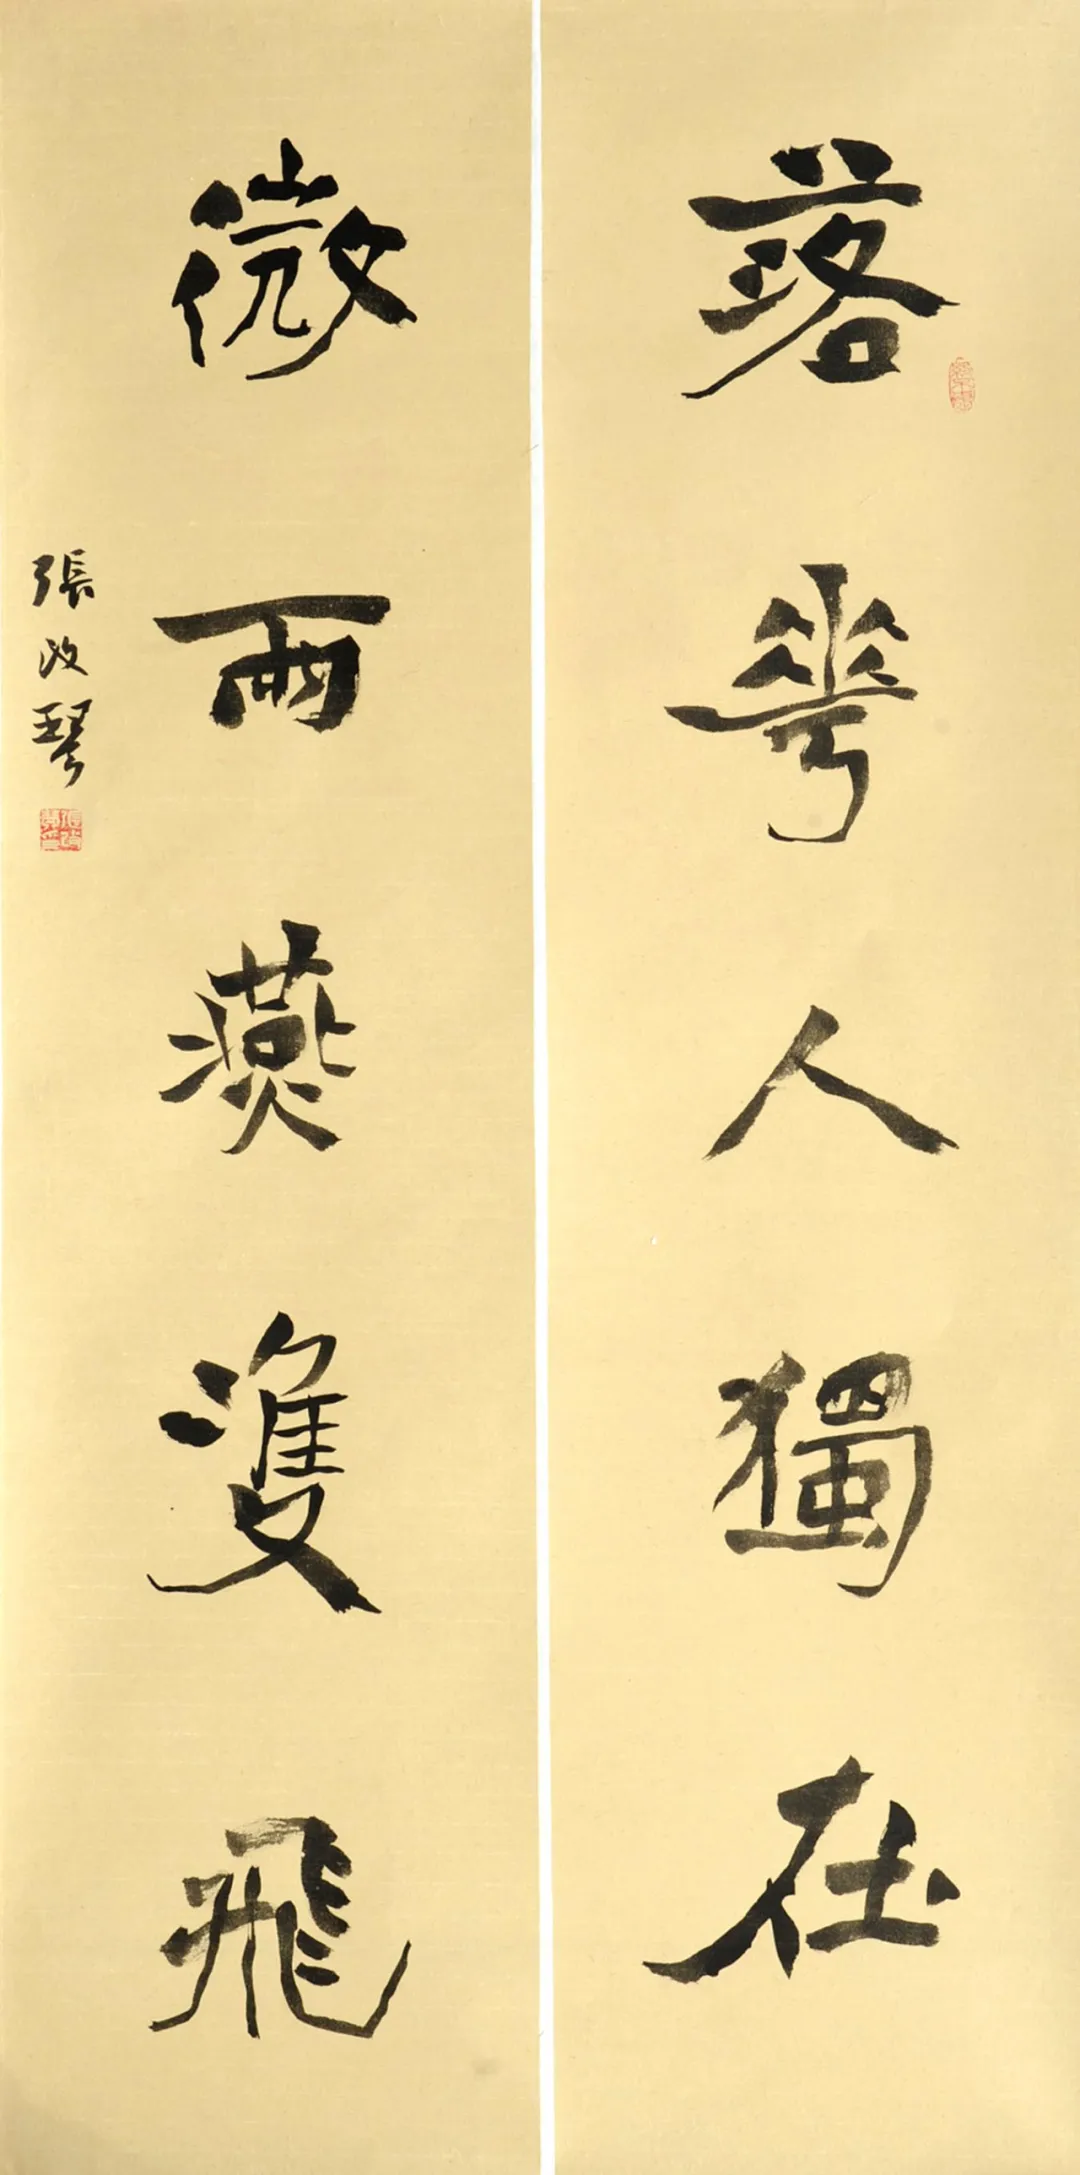 落花人獨在
微雨燕雙飛
張改琴